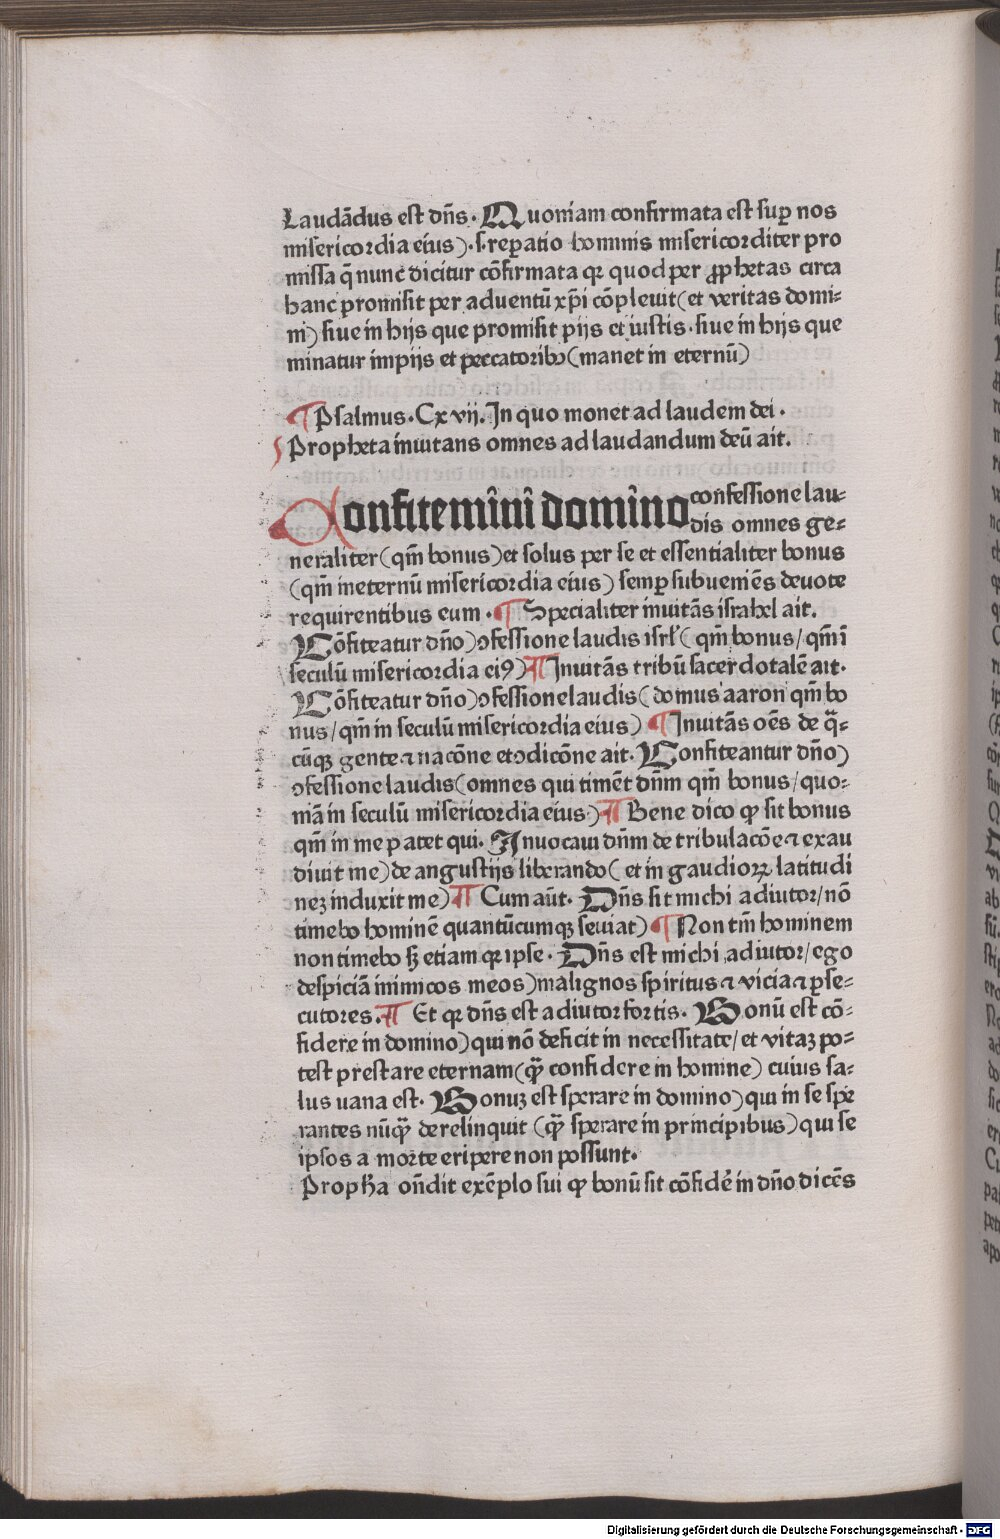 Laudādus est dn̄s. Quoniam confirmata est sup̲ nos
misericordia eius).s.reparatio hominis misericorditer pro
missa q̄ nunc dicitur cōfirmata qꝛ quod per ꝓphetas circa
hanc promisit per aduentū xp̄i cōpleuit(et veritas domi-
ni) siue in hijs que promisit pijs et iustis.siue in hijs que
minatur impijs et peccatoribꝰ(manet in eternū)
¶ Psalmus.Cxvij.In quo monet ad laudem dei.
Propheta inuitans omnes ad laudandum deū ait.
Confitemini domino confessione lau-
dis omnes ge-
neraliter(qm̄ bonus)et solus per se et essentialiter bonus
(qm̄ ineternū misericordia eius) semp̲ subueniēs deuote
requirentibus eum. ¶ Specialiter inuitās israhel ait.
Cōfiteatur dn̄o)ꝯfessione laudis isrl̓(qm̄ bonus/qm̄ ī
seculū misericordia eiꝰ) ¶ Inuitās tribū sacerdotalē ait.
Cōfiteatur dn̄o)ꝯfessione laudis(domus aaron qm̄ bo
nus/qm̄ in seculū misericordia eius) ¶ Inuitās oēs de q̄-
cūqꝫ gente ⁊ nacōne et ꝯdicōne ait. Confiteantur dn̄o)
ꝯfessione laudis(omnes qui timēt dn̄m qm̄ bonus/quo-
mā in seculū misericordia eius) ¶ Bene dico ꝙ sit bonus
qm̄ in me patet qui. Inuocaui dn̄m de tribulacōe ⁊ exau
diuit me)de angustijs liberando(et in gaudioꝝ latitudi
neꝫ induxit me) ¶ Cum aūt. Dn̄s sit michi adiutor/nō
timebo hominē quantūcumqꝫ seuiat) ¶ Non tm̄ hominem
non timebo sꝫ etiam qꝛ ipse. Dn̄s est michi adiutor/ego
despiciā inimicos meos)malignos spiritus ⁊ vicia ⁊ ꝑse-
cutores. ¶ Et qꝛ dn̄s est adiutor fortis. Bonū est cō-
fidere in domino)qui nō deficit in necessitate/et vitaꝫ po-
test prestare eternam(qꝫ̄ confidere in homine) cuius sa-
lus uana est. Bonuꝫ est sperare in domino)qui in se spe
rantes nūqꝫ̄ derelinquit (qꝫ̄ sperare in principibus)qui se
ipsos a morte eripere non possunt.
Propħa on̄dit exēplo sui ꝙ bonū sit cōfidē in dn̄o dicēs
Digitalisierung gefördert durch die Deutsche Forschungsgemeinschaft - DFG